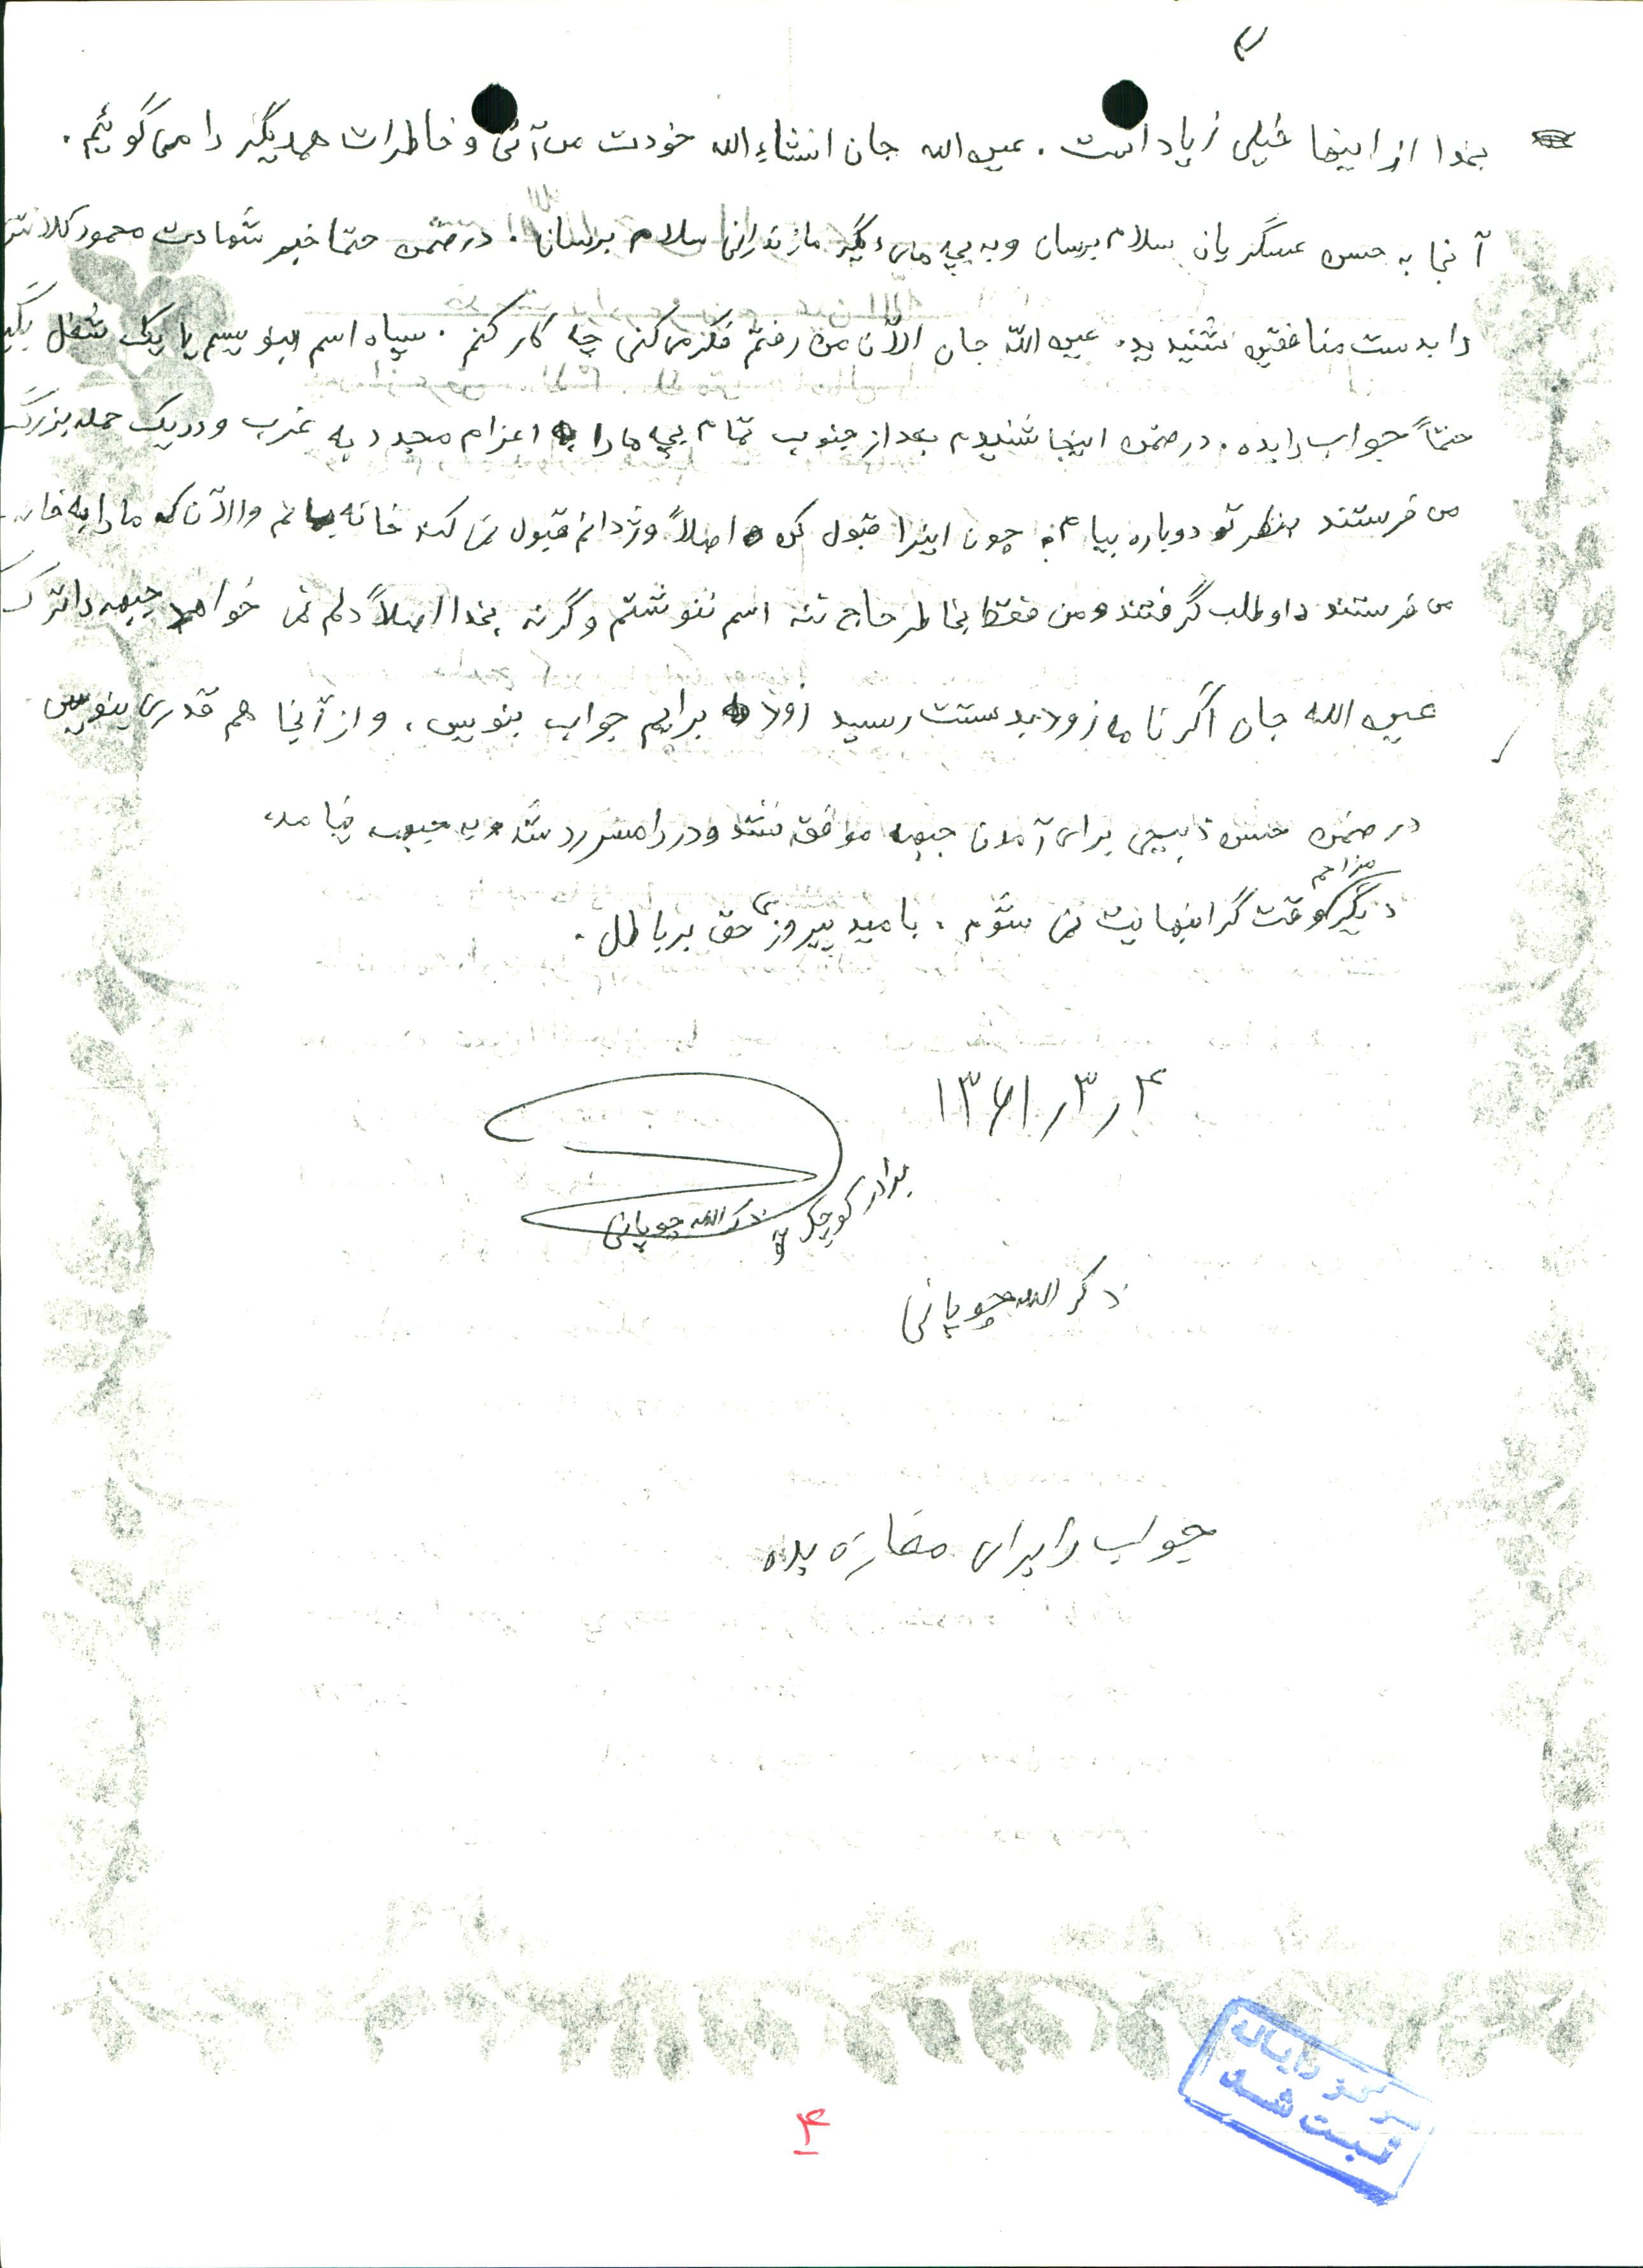 ۴
بخدا از اینها خیلی زیاد است. عین الله جان انشاءالله خودت می آئی و خاطرات همدیگر را می گوئیم.
آنجا به حسن عسگریان سلام برسان و به بچه های دیگر مازندرانی سلام برسان. در ضمن حتما خبر شهادت محمود کلانتر
را بدست منافقین شنیدید. عین الله جان الآن من رفتم فکر می کنی چه کار کنم. سپاه اسم بنویسم یا یک شغل بگیر
حتماً جواب را بده. در ضمن اینجا شنیدم بعد از جنوب تمام بچه ها را به اعزام مجدد به غرب و در یک حمله بزرگ
می فرستند بنظر تو دوباره بیایم نه چون اینرا قبول کن اصلاً وژدانم قبول نمی کند خانه بمانم و الآن که ما را به خانه
می فرستند داوطلب گرفتند و من فقط بخاطر حاج ننه اسم ننوشتم و گرنه بخدا اصلاً دلم نمی خواهد جبهه را ترک ک
عین الله جان اگر نامه زود بدستت رسید زود برایم جواب بنویس، و از آنجا هم قدری بنویس
در ضمن حسن ذبیحی برای آمدن جبهه موافق نشد و در رامسر رد شد و به جبهه نیامد،
دیگر مزاحم وقت گرانبهایت نمی شوم. بامید پیروزی حق بر باطل.
۱۳۶۱٫۳٫۴
برادر کوچک تو ذکرالله چوپانی
ذکرالله چوپانی
جواب را برای مغازه بده
مرکز رایانه
ثبت شد
۴